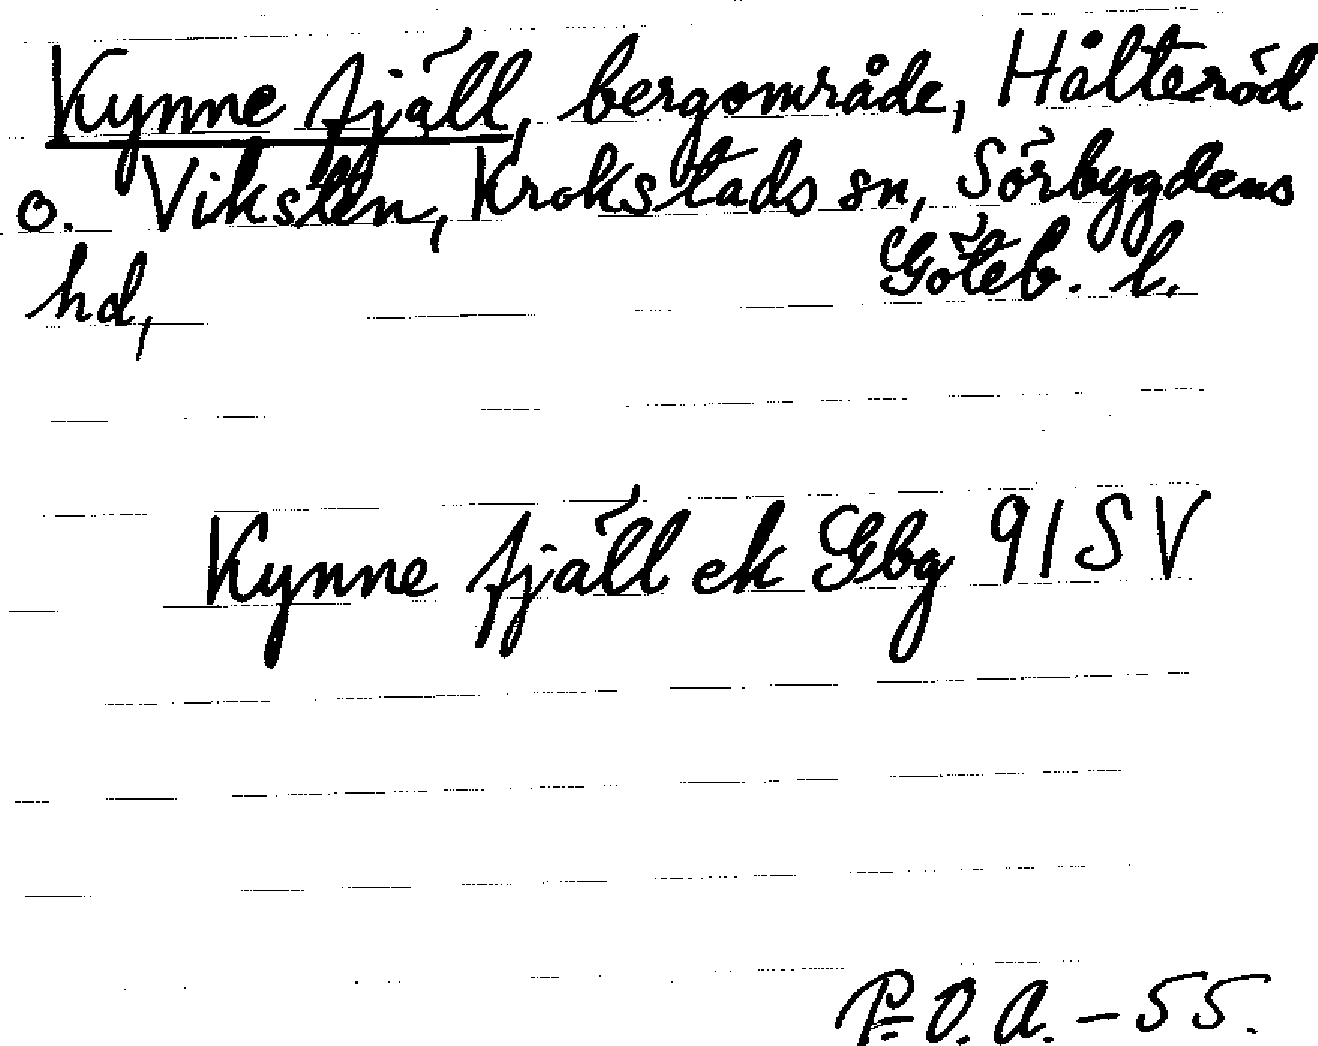 Kynne fjäll, bergområde, Hålteröd
o. Viksten, Krokstads sn, Sörbygdens
hd, Göteb. l.
Kynne fjäll ek Gbg 91 SV
P.O.A. - 55.